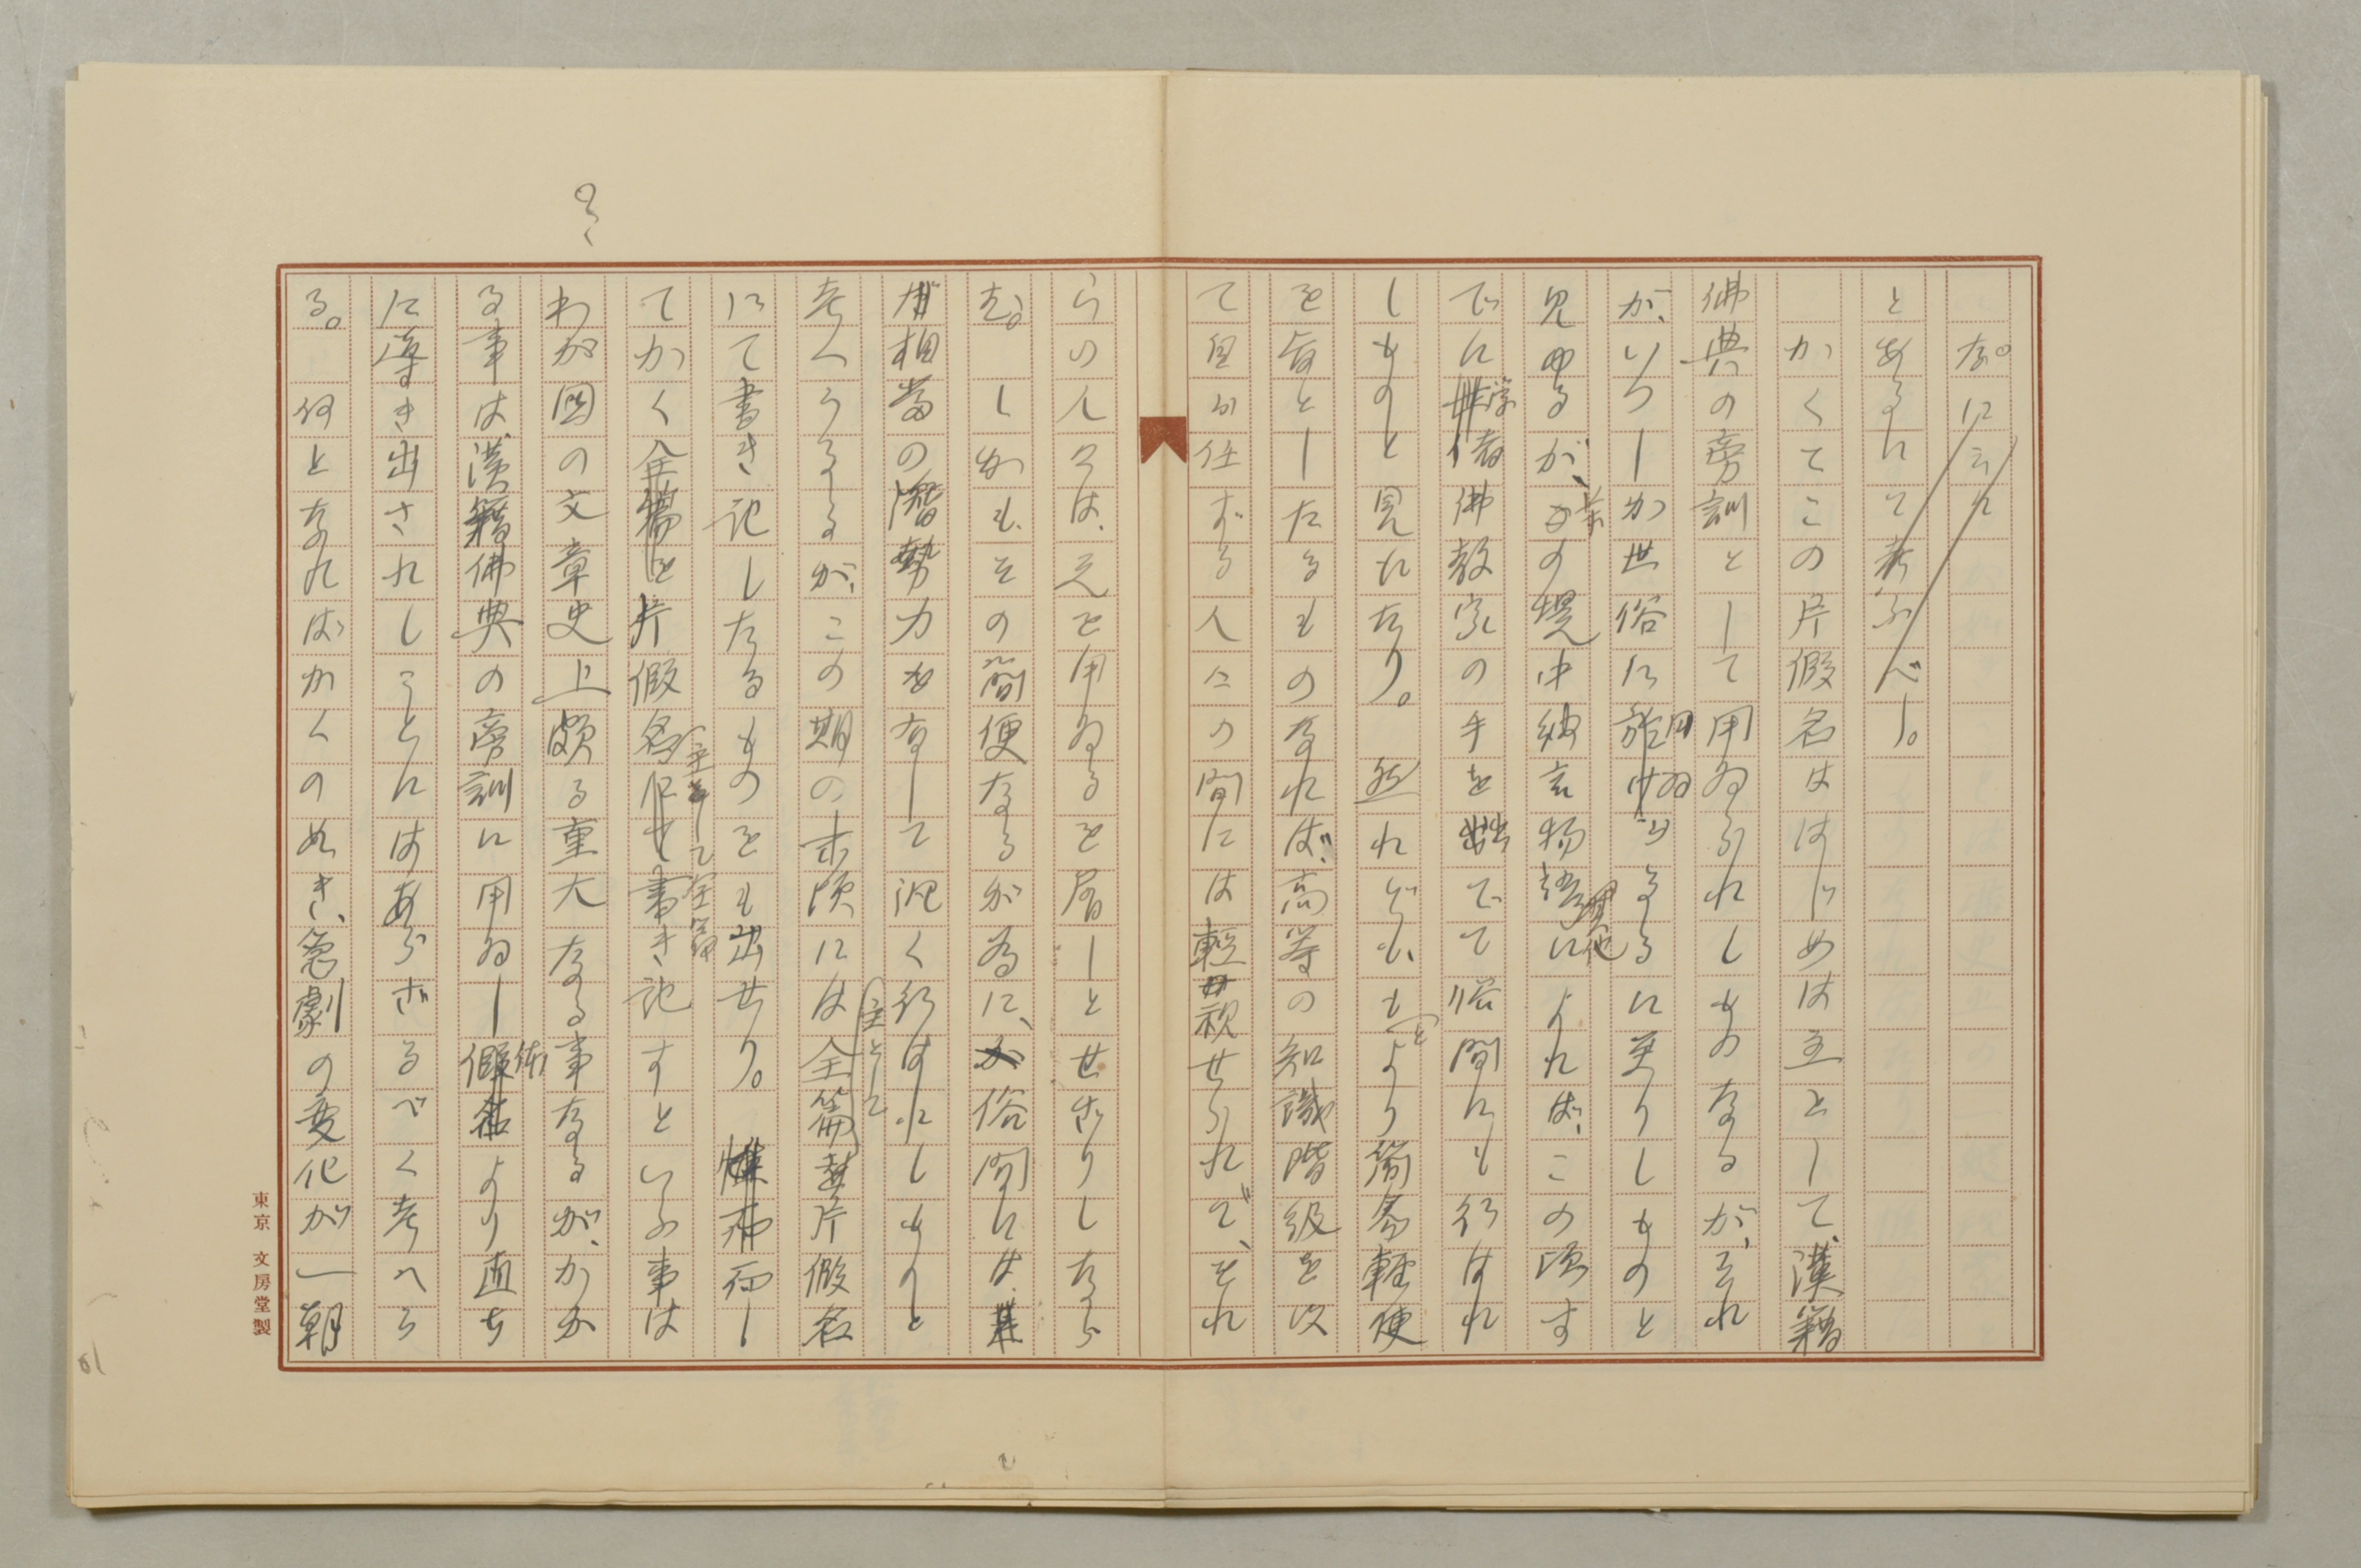 な。に云れ
とあるにて考ふべし。
かくてこの片假名ははじめは主として、漢籍
佛典の旁訓として用ゐられしものなるが、それ
が、いつしか世俗に用ゐらるるに至りしものと
見ゆるが、堤中納言物語によれば、この頃す
でに学者佛教家の手を出でて俗間にも行はれ
しものと見えたり。然れども、もとより簡易軽便
を旨としたるものなれば、高等の知識階級を以
て自ら任ずる人々の間には軽視せられて、それ
らの人々は、之を用ゐるを屑しとせざりしなら
む。しかもその簡便なるが為に、俗間には
相當の潛勢力を有して汎く行はれしものと
考へらるるが、この期の末頃には全篇主として片假名
にて書き記したるものをも出せり。而して
かく片假名を主として全篇を書き記すといふ事は
わが國の文章史上頗る重大なる事なるが、かか
る事は漢籍佛典の旁訓に用ゐし術より直ち
に導き出されしことにはあらざるべく考へら
る。何となればかくのぬき、急劇の変化が一朝
東京 文房堂製